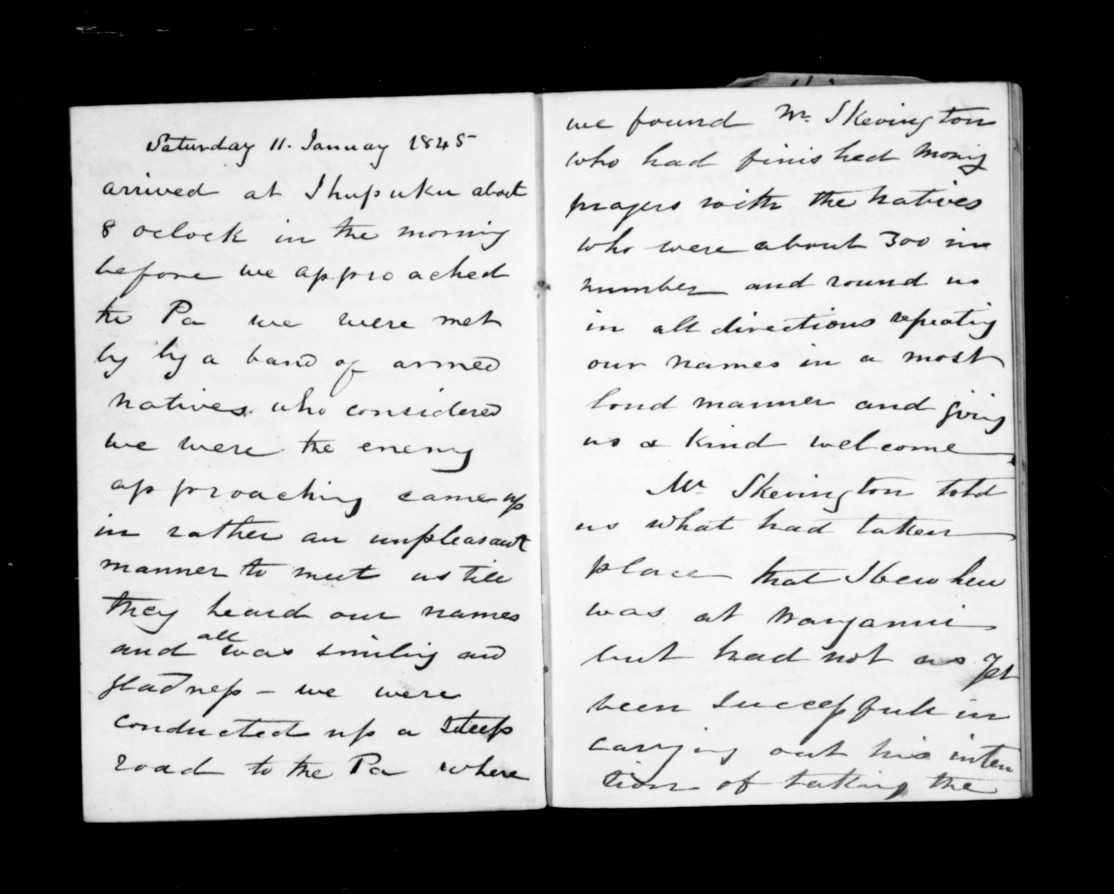 Saturday 11. Januay 1845
arrived at Ihupuku about
8 oclock in the morning
before we approached
the Pa we were met
by by a band of armed
natives. who considered
we were the enemy
approaching came up
in rather an unpleasant
manner to meet us till
they heard our names
and all was smiling and
gladness – we were
conducted up a steep
road to the Pa where
we found Mr. Skevington
who had finished morng
prayers with the natives
who were about 300 in
number and round us
in all directions repeating
our names in a most
loud manner and giving
us a kind welcome
Mr Skevington told
us what had taken
place that
was at
but had not as yet
been successfull in
carrying out his inten
tion of taking the